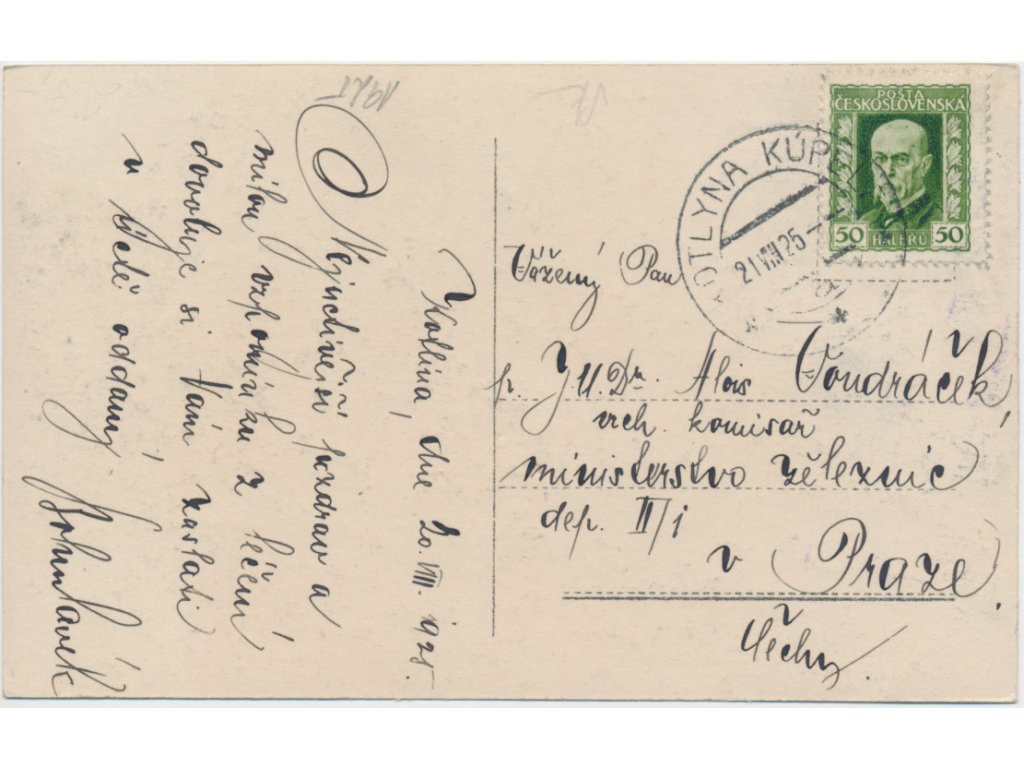 1925
Kotlina, dne 20. VIII. 1925.
Nejuctivější pozdrav a
milou vzpomínku z léčení
dovoluje si Vám zaslati
v úctě oddaný
POŠTA
ČESKOSLOVENSKÁ
50 HALÉŘŮ 50
KOTLYNA KÚP
21 VIII 25
Vážený Pan
p. JUDr. Alois Vondráček,
vrch. komisař
ministerstvo železnic
dep. II/1
v Praze.
Čechy